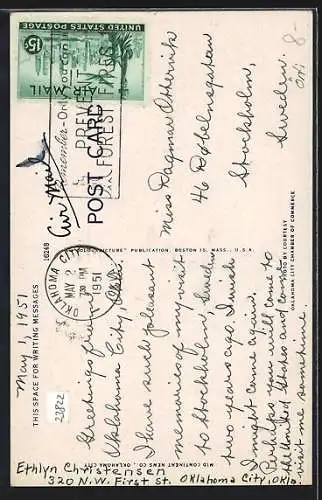 May 1, 1951
THIS SPACE FOR WRITING MESSAGES
22822
Greetings from
Oklahoma City, Okla.
I have such pleasant
memories of my visit
to Stockholm, Sweden
two years ago. I wish
I might come again.
Perhaps you will come to
the United States and could
visit me sometime.
Ethlyn Christensen
320 N.W. First St. Oklahoma City, Okla.
MID CONTINENT NEWS CO., OKLAHOMA CITY
PUBLICATION, BOSTON 15, MASS., U.S.A.
16248
Air Mail
POST CARD
UNITED STATES POSTAGE
15¢
AIR MAIL
Remember - Only you can
PREVENT
FOREST FIRES
OKLAHOMA CITY
MAY 2
30 PM
1951
OKLA.
Miss Dagmar
46 Döbelnsgatan
Stockholm,
Sweden.
BY COURTESY
OKLAHOMA CITY CHAMBER OF COMMERCE
8-